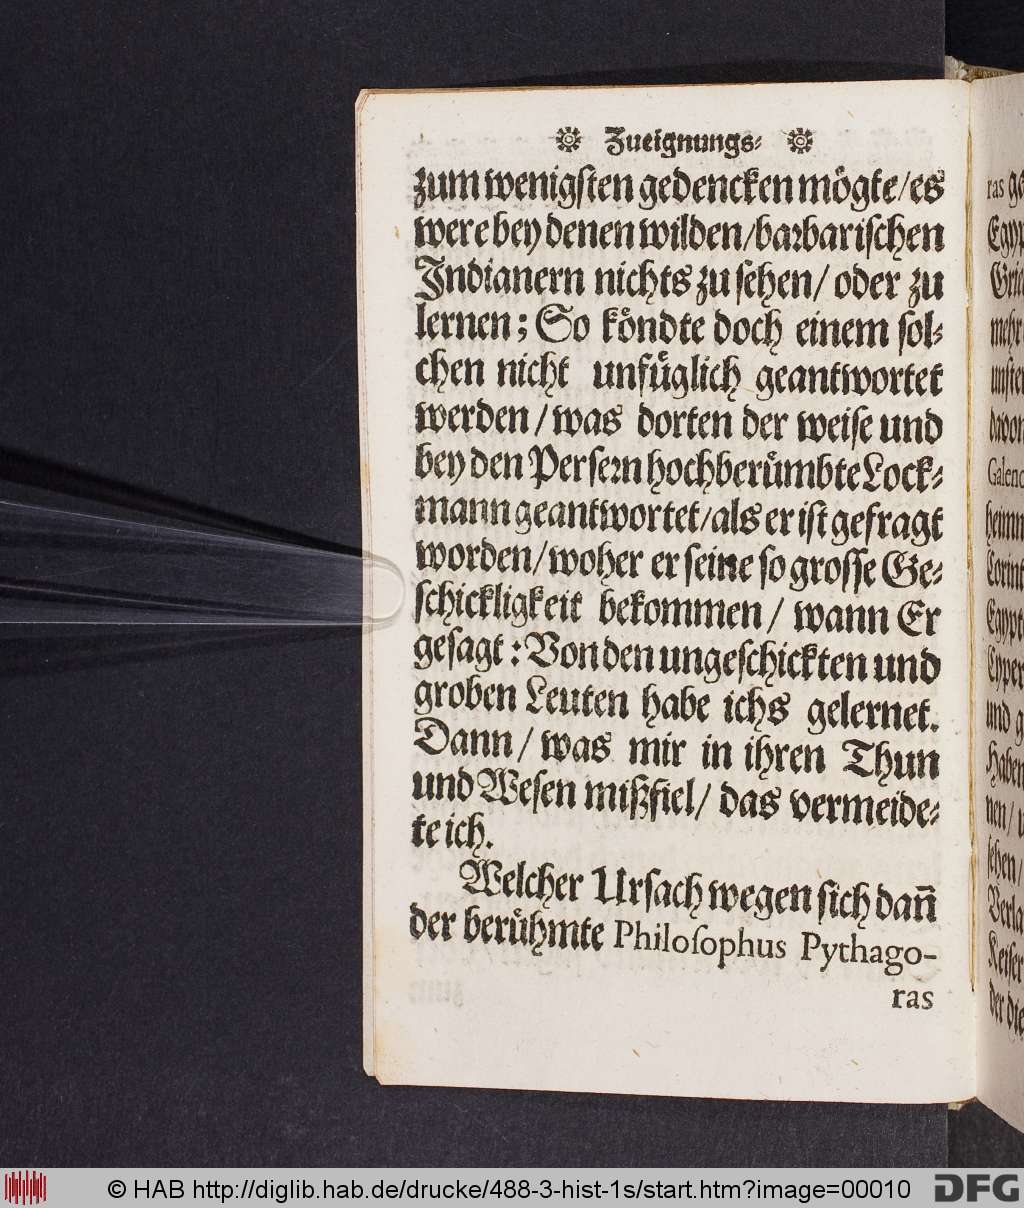 Zueignungs-
zum wenigsten gedencken mögte/es
were bey denen wilden/barbarischen
Indianern nichts zu sehen/ oder zu
lernen; So köndte doch einem sol-
chen nicht unfüglich geantwortet
werden/was dorten der weise und
bey den Persern hochberümbte Lock-
mann geantwortet/als er ist gefragt
worden/woher er seine so grosse Ge-
schickligkeit bekommen/ wann Er
gesagt: Von den ungeschickten und
groben Leuten habe ichs gelernet.
Dann/ was mir in ihren Thun
und Wesen mißfiel/ das vermeide-
te ich.
Welcher Ursach wegen sich dañ
der berühmte Philosophus Pythago-
ras
ras
mehr
Galeno
Egypt
Cyper
und g
Haben
nen/
sehen/
Verla
Keiser
der die
© HAB http://diglib.hab.de/drucke/488-3-hist-1s/start.htm?image=00010
DFG